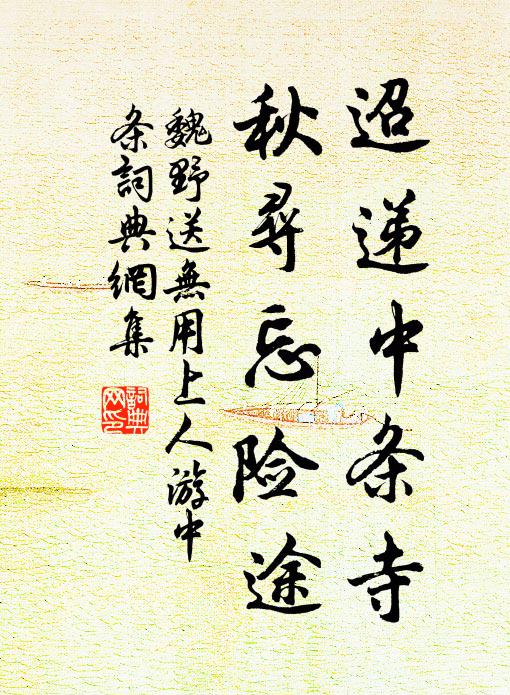 迢递中条寺
秋寻忘险途
魏野送無用上人游中
条詞典網集
詞典
网印